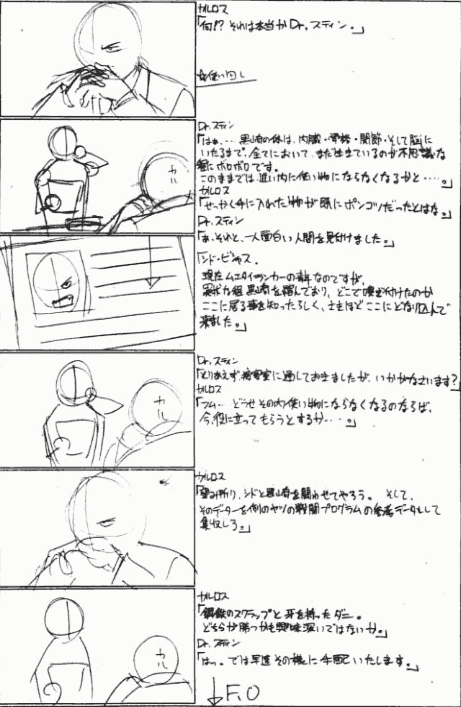 カルロス
「何!? それは本当か Dr. スティン。」
Dr. スティン
「はぁ、… 黒崎の体は、内臓・骨格・関節・そして脳に
いたるまで、全てにおいて、まだ生きているのが不思議な
程にボロボロです。
このままでは 近い内に使い物にならなくなるかと……。」
カルロス
「せっかく手に入れた物が既にポンコツだったとはな。」
Dr. スティン
「あ、それと、一人面白い人間を見付けました。」
「シド・ビシャス。
現在ムエタイランカーの青年なのですが、
黒崎を
ここに居る事を知ったらしく、さきほどここにどなり込んで
来ました。」
Dr. スティン
「とりあえず、接客室に通しておきましたが、いかがなさいます?」
カルロス
「フム… どうせその内使い物にならなくなるのならば、
今、役に立ってもらうとするか……。」
カルロス
「望み所り、シドと黒崎を闘わせてやろう。 そして、
そのデーターを例のヤツの戦闘プログラムの データとして
集収しろ。」
カルロス
「鋼鉄のスクラップと 牙を持ったダニ。
どちらが勝つかも興味深いではないか。」
Dr. スティン
「はっ。では早速その様に手配いたします。」
F.O
カル
カル
カル